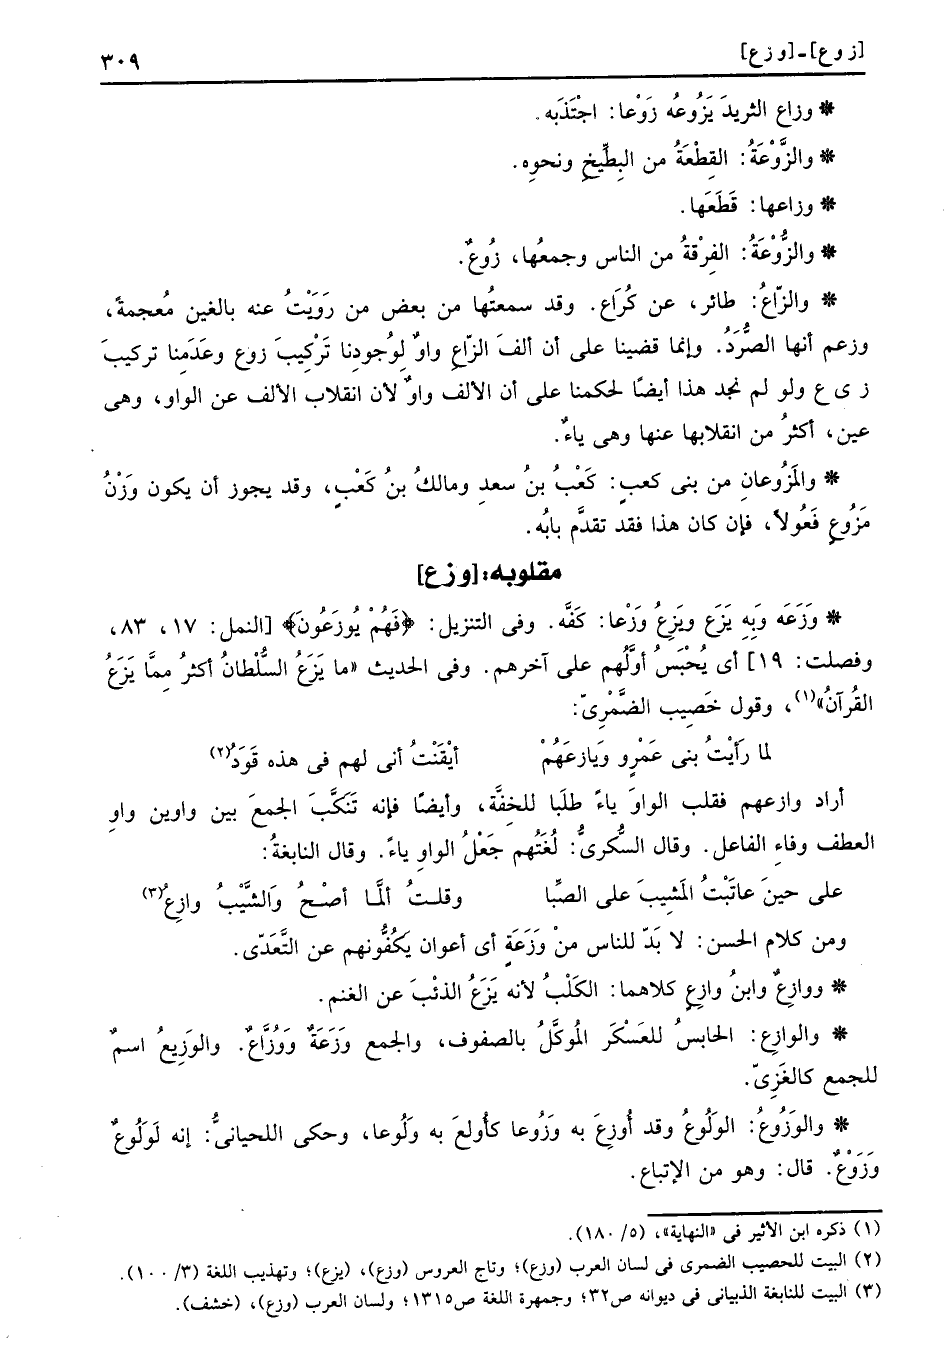 [زوع]ـ[وزع] ٣٠٩
* وزاع الثريدَ يَزُوعُه زَوْعا: اجْتَذَبه.
* والزَّوْعَةُ: القِطْعَةُ من البِطِّيخِ ونحوِه.
* وزاعها: قَطَعَها.
* والزُّوْعَةُ: الفِرْقةُ من الناس وجمعُها، زُوعٌ.
* والزّاعُ: طائر، عن كُرَاع. وقد سمعتُها من بعض من رَوَيْتُ عنه بالغين مُعجمةً،
وزعم أنها الصُّرَدُ. وإنما قضينا على أن ألفَ الزّاعِ واوٌ لِوُجودِنا تَرْكِيبَ زوع وعَدَمِنا تركيبَ
ز ى ع ولو لم نجد هذا أيضًا لحكمنا على أن الألف واوٌ لأن انقلاب الألف عن الواو، وهى
عين، أكثرُ من انقلابها عنها وهى ياءٌ.
* والمَزُوعانِ من بنى كعبٍ: كَعْبُ بنُ سعدٍ ومالكُ بنُ كَعْبٍ، وقد يجوز أن يكون وَزْنُ
مَزُوعٍ فَعُولاً، فإن كان هذا فقد تقدَّم بابُه.
مقلوبه: [وزع]
* وَزَعَه وَبِه يَزَع ويَزِعُ وَزْعا: كفَّه. وفى التنزيل: ﴿فَهُمْ يُوزَعُونَ﴾ [النمل: ١٧، ٨٣،
وفصلت: ١٩] أى يُحْبَسُ أوَّلُهم على آخرهم. وفى الحديث «ما يَزَعُ السُّلْطان أكثرُ مِمَّا يَزَعُ
القُرآنُ»(١)، وقول خَصِيب الضَّمْرِىّ:
لما رَأَيْتُ بنى عَمْرٍو وَيَازعَهُمْ أيْقَنْتُ أنى لهم فى هذه قَوَدُ(٢)
أراد وازعهم فقلب الواوَ ياءً طلَبا للخفَّة، وأيضًا فإنه تَنَكَّبَ الجمعَ بين واوين واوِ
العطف وفاءِ الفاعل. وقال السُّكرىُّ: لُغَتُهم جَعْلُ الواوِ ياءً. وقال النابغةُ:
على حينَ عاتَبْتُ المَشِيبَ على الصبَّا وقلتُ ألمَّا أصْحُ وَالشَّيْبُ وازِعُ(٣)
ومن كلام الحسن: لا بَدّ للناس منْ وَزَعَةٍ أى أعوان يَكُفُّونهم عن التَّعَدّى.
* ووازِعٌ وابنُ وازِعٍ كلاهما: الكَلْبُ لأنه يَزَعُ الذئْبَ عن الغنم.
* والوازِع: الحابسُ للعَسْكَر المُوكَّلُ بالصفوف، والجمع وَزَعَةٌ وَوُزَّاعٌ. والوَزِيعُ اسمٌ
للجمع كالغَزِىّ.
* والوَزُوعُ: الوَلُوعُ وقد أُوزِعَ به وَزُوعا كأُولعَ به وَلُوعا، وحكى اللحيانىُّ: إنه لَوَلُوعٌ
وَزَوْعٌ. قال: وهو من الإتباع.
(١) ذكره ابن الأثير فى «النهاية»، (٥/ ١٨٠).
(٢) البيت للحصيب الضمرى فى لسان العرب (وزع)؛ وتاج العروس (وزع)، (يزع)؛ وتهذيب اللغة (٣/ ١٠٠).
(٣) البيت للنابغة الذبيانى فى ديوانه ص٣٢؛ وجمهرة اللغة ص١٣١٥؛ ولسان العرب (وزع)، (خشف).